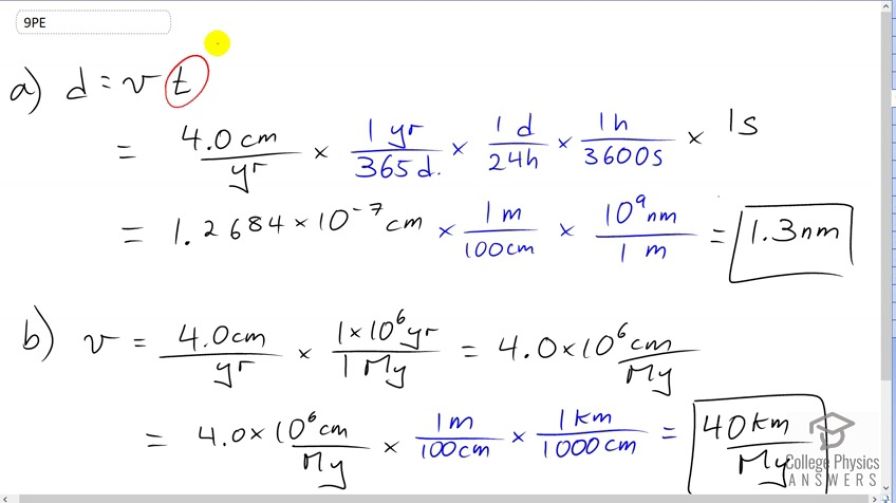 9PE
a) d = v t
= 4.0 cm/yr × 1 yr/365 d. × 1 d/24h × 1h/3600s × 1s
= 1.2684 × 10⁻⁷ cm × 1m/100cm × 10⁹nm/1 m = 1.3nm
b) v = 4.0cm/yr × 1×10⁶yr/1 My = 4.0×10⁶cm/My
= 4.0×10⁶cm/My × 1m/100cm × 1km/1000cm = 40km/My
College Physics
ANSWERS